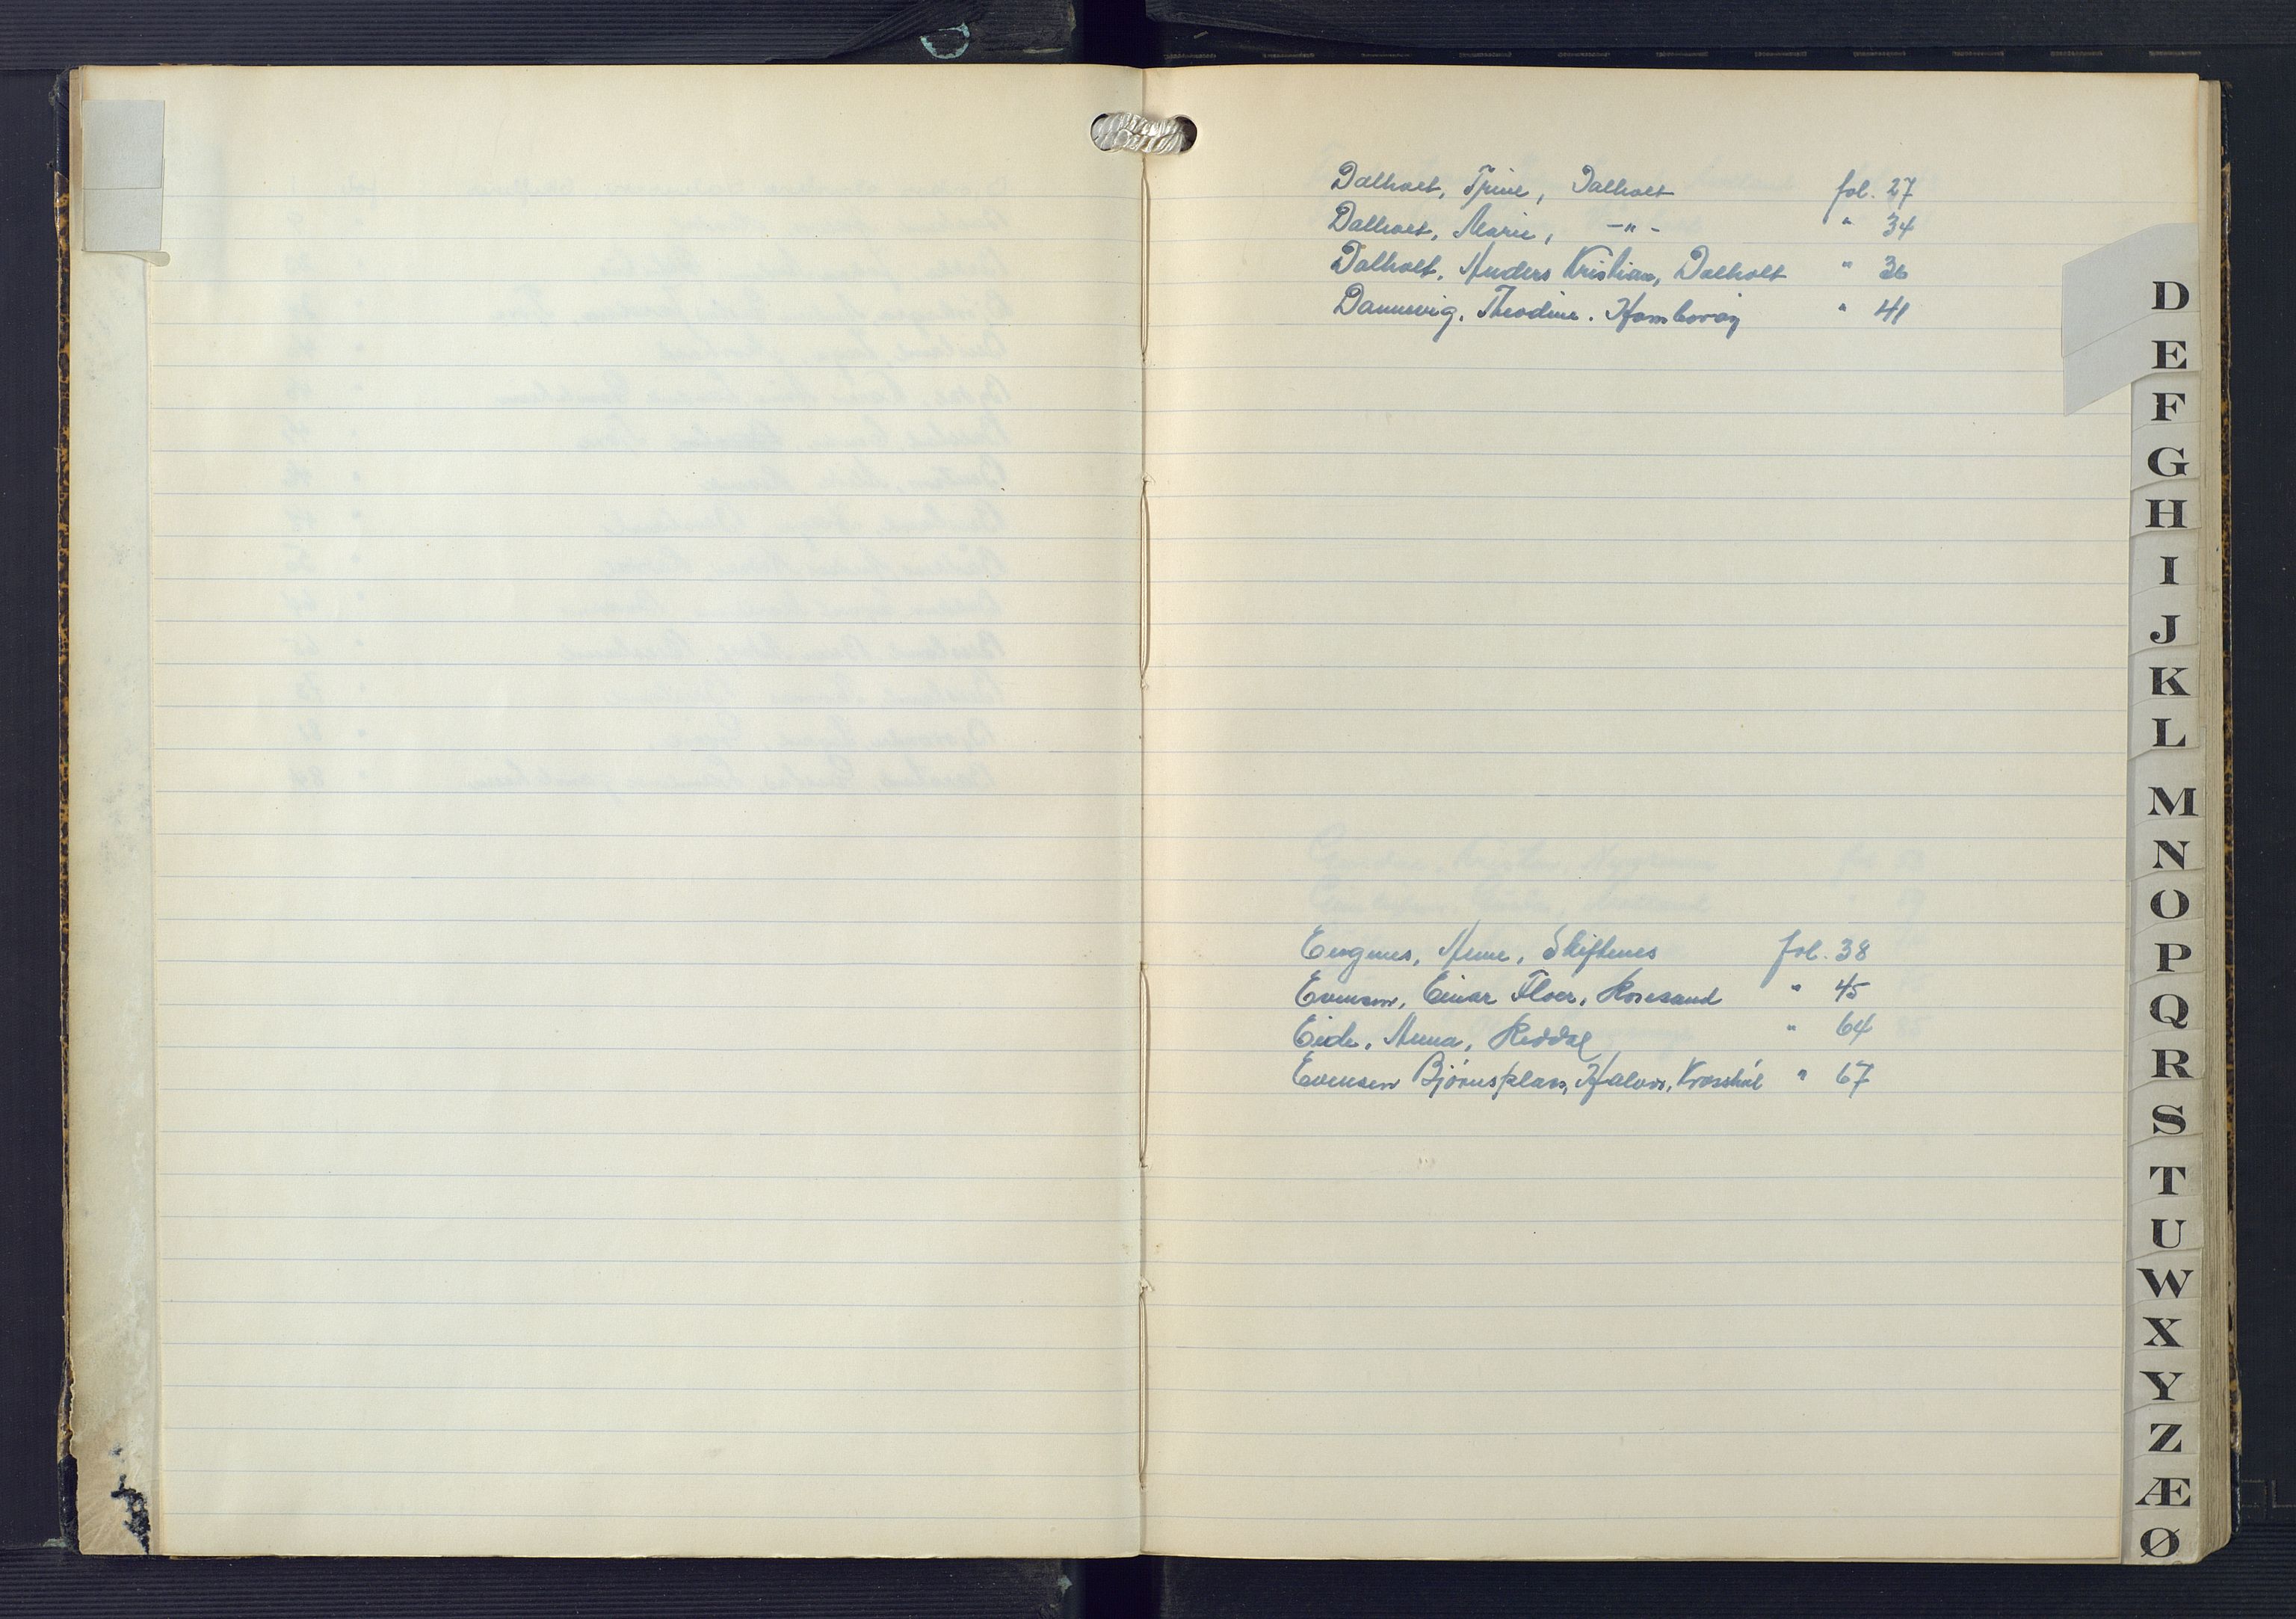 Dalholt, Trine, Dalholt fol. 27
Dalholt, Marie, -"- " 34
Dalholt, Anders Kristian, Dalholt " 36
Dannevig, Theodine. Homborøy " 41
Eugnes, Anne, Skiftenes fol. 38
Evensen, Einar Floer, Rosesand " 45
Eide, Anna, Reddal " 64
Evensen Bjørnsplass, Halvor, Krosshål " 67
D
E
F
G
H
I
J
K
L
M
N
O
P
Q
R
S
T
U
W
X
Y
Z
Æ
Ø